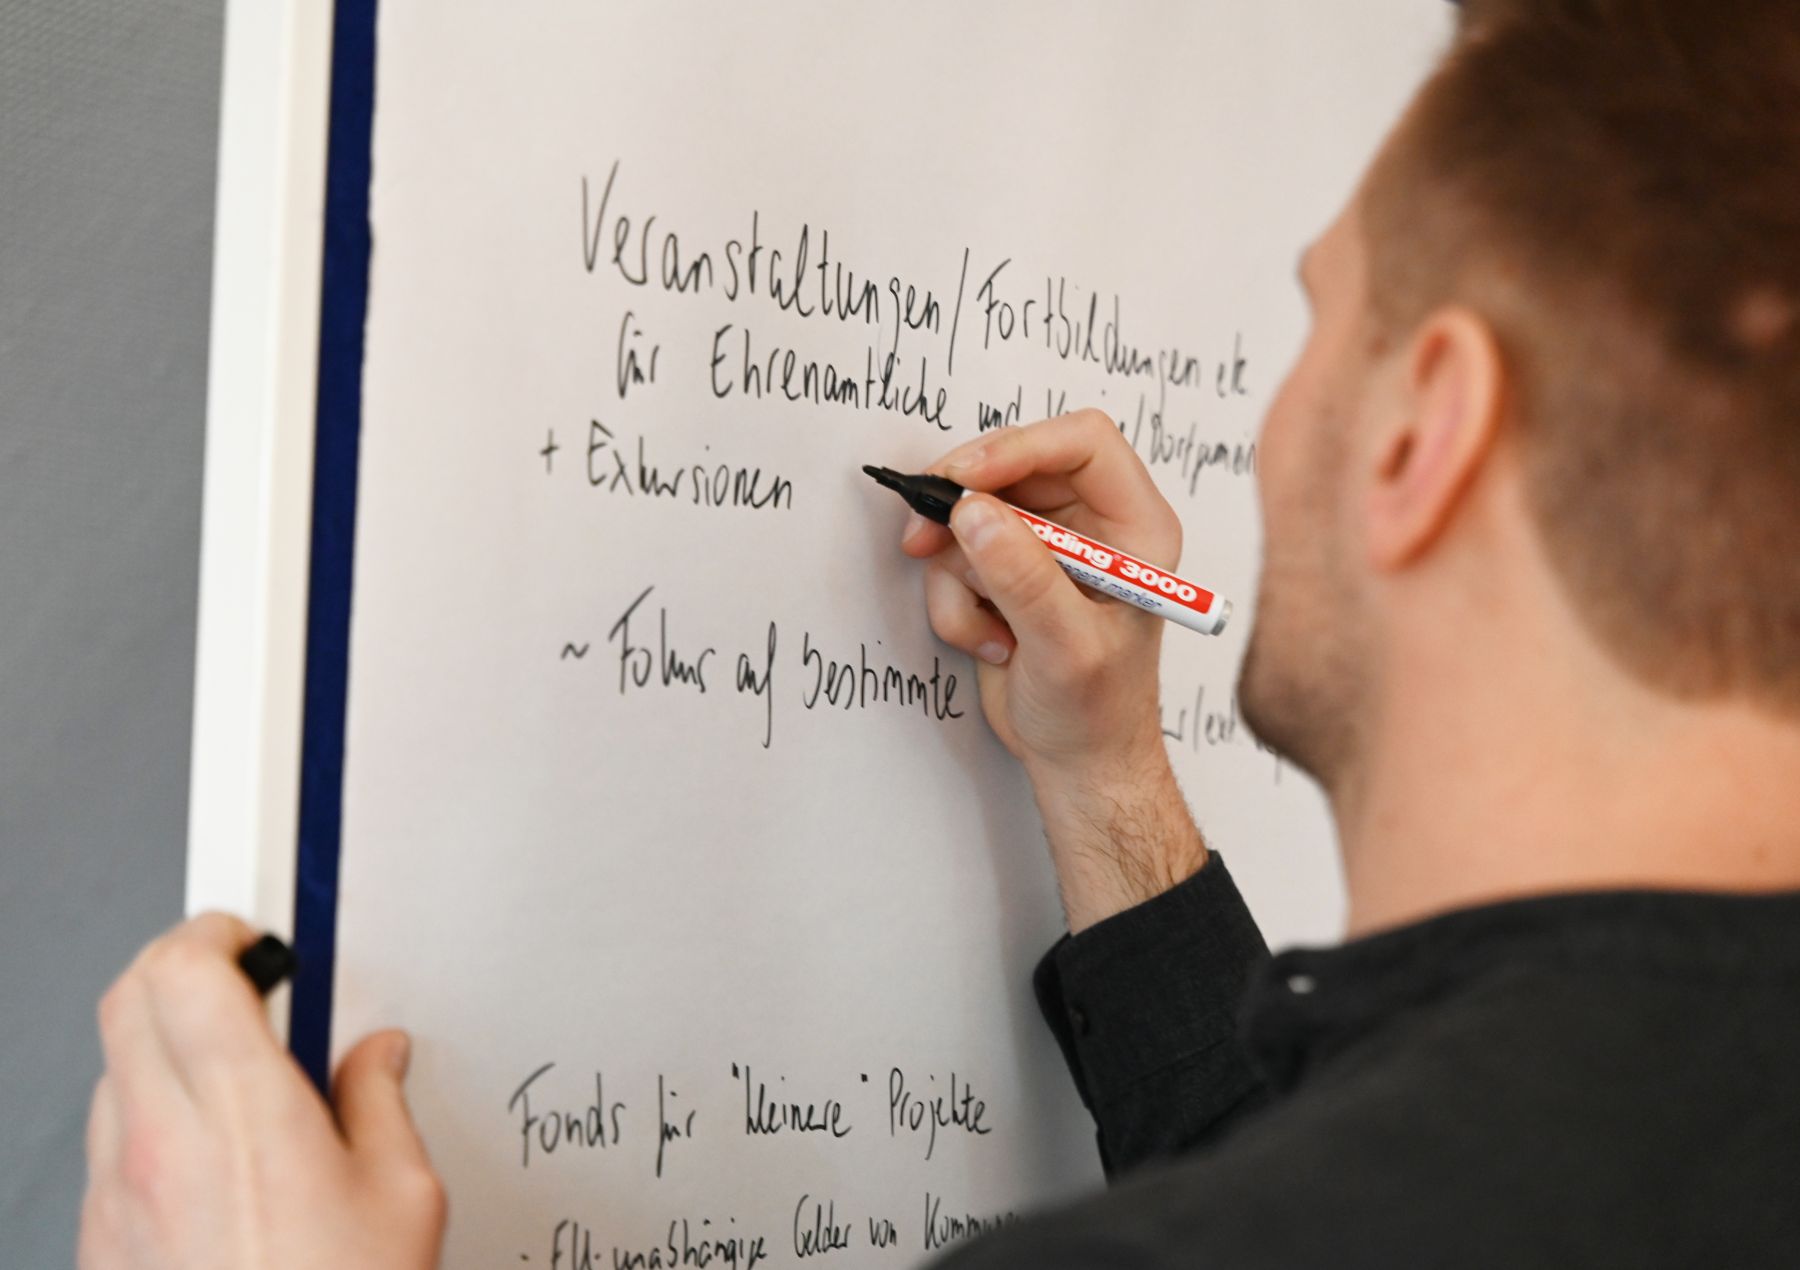 Veranstaltungen/Fortbildungen etc.
für Ehrenamtliche und
+ Exkursionen
edding 3000
permanent marker
~ Fokus auf bestimmte
Fonds für "kleinere" Projekte
- EU-unabhängige Gelder von Kommunen